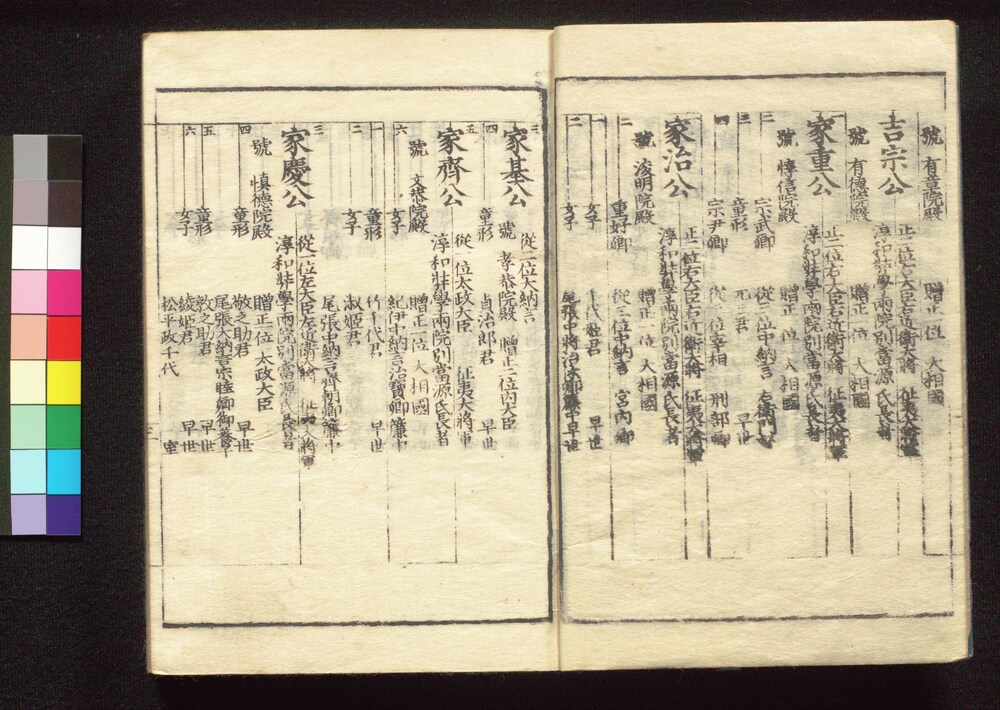 號 有章院殿 贈正一位 大相國
吉宗公 正二位右大臣右近衛大將 征夷大將軍
淳和奨學兩院別當源氏長者
號 有德院殿 贈正一位 大相國
家重公 正二位右大臣右近衛大將 征夷大將軍
淳和奨學兩院別當源氏長者
號 惇信院殿 贈正一位 大相國
二 宗武卿 從三位中納言 右衛門督
三 童形 早世
四 宗尹卿 從三位宰相 刑部卿
家治公 正二位右大臣右近衛大將 征夷大將軍
淳和奨學兩院別當源氏長者
號 浚明院殿 贈正一位 大相國
二 重好卿 從三位中納言 宮内卿
一 女子 千代姫君 早世
二 女子 尾張中將治休卿簾中 早世
三
家基公 從二位大納言
號 孝恭院殿 贈正二位内大臣
四 童形 貞治郎君 早世
五
家齊公 從一位太政大臣 征夷大將軍
淳和奨學兩院別當源氏長者
號 文恭院殿 贈正一位大相國
六 女子 紀伊中納言治寶卿簾中
一 童形 竹千代君 早世
二 女子 淑姫君
尾張中納言齊朝卿簾中
三
家慶公 從一位左大臣左近衛大將 征夷大將軍
淳和奨學兩院別當源氏長者
號 慎德院殿 贈正一位太政大臣
四 童形 敬之助君 早世
尾張大納言宗睦卿御養子
五 童形 敦之助君 早世
六 女子 綾姫君 早世
松平政千代 室